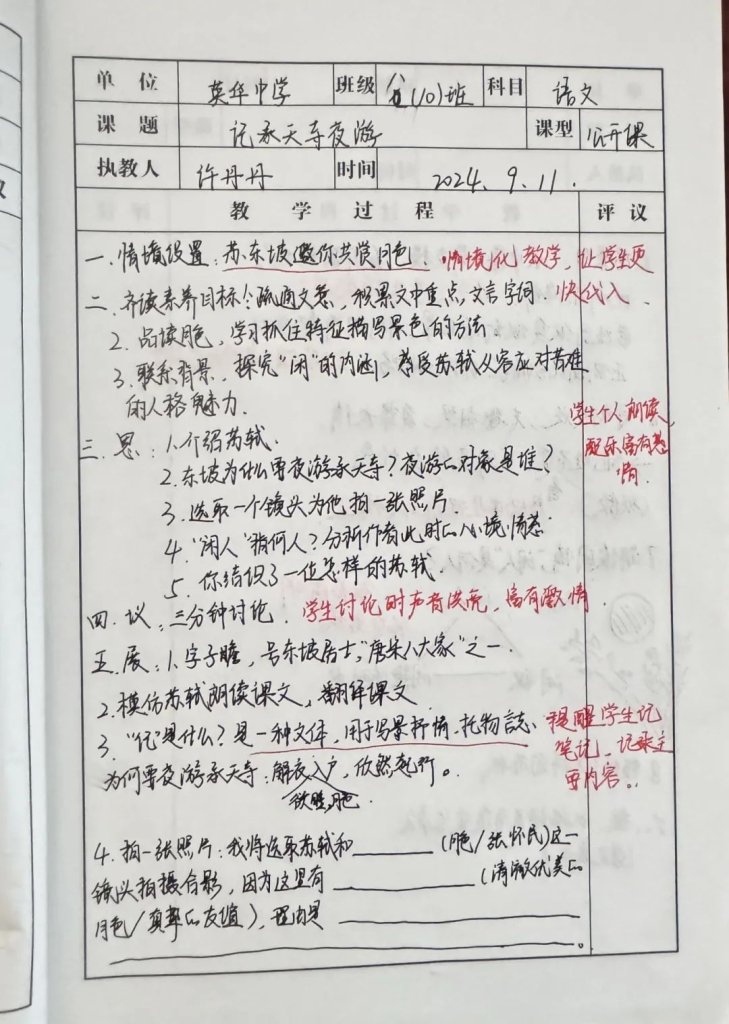 单位 英华中学 班级 (10)班 科目 语文
课题 记承天寺夜游 课型 公开课
执教人 许丹丹 时间 2024.9.11.
教学过程 评议
一.情境设置:苏东坡邀你共赏月色. 情境化教学,让学生更
二.齐读素养目标:1.疏通文意,积累文中重点文言字词. 快代入.
2.品读月色,学习抓住特征描写景色的方法.
3.联系背景,探究“闲”的内涵,感受苏轼从容应对苦难
的人格魅力. 学生个人朗读,
三.思:1.介绍苏轼. 富有感
2.东坡为什么要夜游承天寺?夜游的对象是谁? 情.
3.选取一个镜头为他拍一张照片.
4.“闲人”指何人?分析作者此时的心境情感.
5.你结识了一位怎样的苏轼.
四.议:三分钟讨论. 学生讨论时声音洪亮,富有激情.
五.展:1.字子瞻,号东坡居士,“唐宋八大家”之一.
2.模仿苏轼朗读课文,翻译课文.
3.“记”是什么?是一种文体,用于写景抒情、托物言志. 提醒学生记
为何要夜游承天寺:解衣入户,欣然起行。 笔记,记录主
欲睡,月色. 要内容。
4.拍一张照片:我将选取苏轼和______(月色/张怀民)这一
镜头拍摄合影,因为这里有______(清澈优美的
月色/真挚的友谊),理由是______
______。